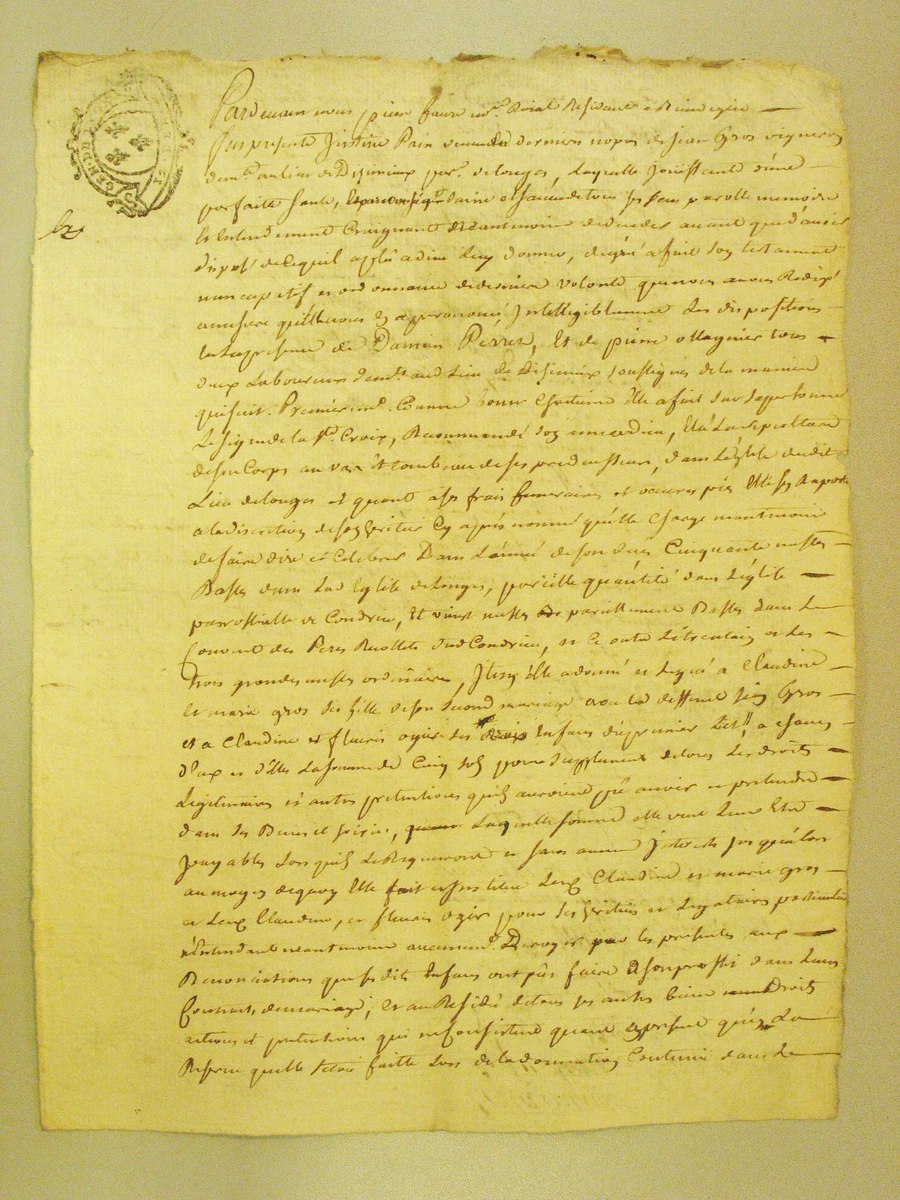 Pardevant nous pierre faure no.re Roial Residant a
fut presente Justine Pain veuve en dernieres nopces de jean Gros vigneron
dem.t au lieu de Disimieux par.e de longes, laquelle Jouissant d'une
parfaitte sante, saine de tous ses sens parolle memoire
et entendement Craignant neantmoins
dispose de ce qu'il a plû a dieu luy donner, de gré a fait son testament
nuncupatif et ordonnance de derniere volonté que nous avons Redigé
a mesure qu'elle nous en a prononcé Intelligiblement les dispositions
en la presence de Damien Perret, Et de pierre ollagnier tous
deux Laboureurs dem.t aud Lieu de Disimieux soussignes de la maniere
qui suit. Premierem.t Comme bonne Chretienne Elle a fait sur sa personne
Le signe de la S.te Croix, Recommandé son ame a dieu, Elû La sepulture
de son Corps au vas et tombeau de ses predecesseurs, dans L'eglise dudit
Lieu de longes et quant a ses frais funeraires et oeuvres pies Elle s'en raporte
a la discretion de son heritier Cy apres nommé qu'elle Charge neantmoins
de faire dire et Celebrer Dans L'année de son deces Cinquante messes
Basses dans Lad Eglise de longes, pareille quantité dans L'eglise
parroissialle de Condrieu, Et vingt messes pareillement Basses dans Le
Couvent des Peres Recollets dud Condrieu, et Ce outre Les
trois grandes messes ordinaires, Item Elle a donné et Legué a Claudine
et marie gros ses fille de son second mariage avec led deffunt Jean Gros
et a Claudine et fleurie ogier ses Enfans du premier Lit a chacune
d'eux et d'elles La somme de Cinq sols pour supplement de tous Les droits
Legitimaires et autres pretentions qu'ils auroient pû avoir et pretendre
dans ses Biens et hoirie, Laquelle somme elle veut Leur Etre
payables Lors qu'ils Le Requerront et sans aucun Interets jusqu'alors
au moyen de quoy Elle fait et institue Lesd Claudine et marie gros
et Lesd Claudine, et fleurie ogier pour ses heritiers et Legataires particuliers
n'Entendant neantmoins aucunem.t Deroger par les presentes aux
Renonciations que sesdits Enfans ont pû faire a son proffit dans Leurs
Contrats de mariage, Et au Residû de tous ses autres biens droits
actions et pretentions qui ne Consistent quant a present qu'en La
Reserve qu'elle s'etoit faitte Lors de la donnation Contenue dans Le